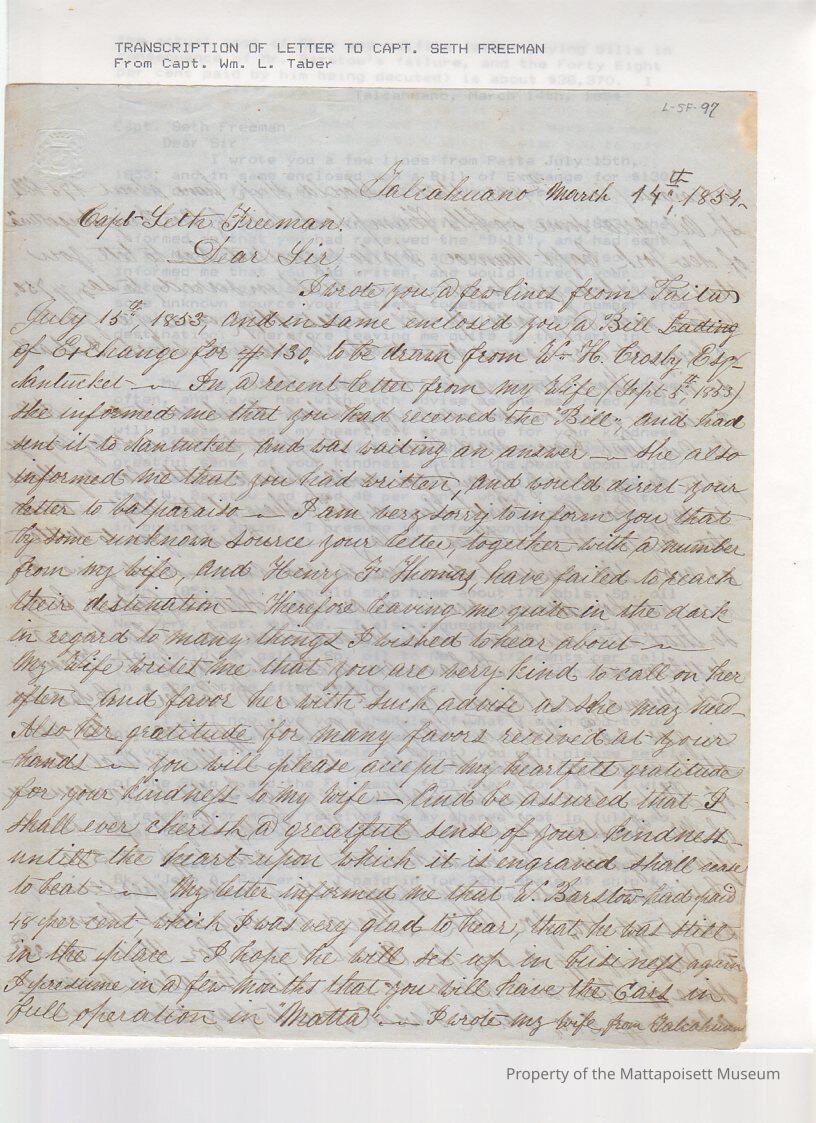 TRANSCRIPTION OF LETTER TO CAPT. SETH FREEMAN
From Capt. Wm. L. Taber
L-SF-97
Talcahuano March 14th, 1854
Capt Seth Freeman.
Dear Sir
I wrote you a few lines from Paita
July 15th, 1853, and in same enclosed you a Bill Lading
of Exchange for $130. to be drawn from Wm H. Crosby Esq-
Nantucket - In a recent letter from my Wife (Sept 5th 1853)
she informed me that you had received the "Bill", and had
sent it to Nantucket, and was waiting an answer - She also
informed me that you had written, and would direct your
letter to Valparaiso - I am very sorry to inform you that
by some unknown source your letter, together with a number
from my wife, and Henry F. Thomas, have failed to reach
their destination - Therefore leaving me quite in the dark
in regard to many things I wished to hear about -
My Wife writes me that you are very kind to call on her
often - and favor her with such advise as she may need -
Also her gratitude for many favors received at your
hands - you will please accept my heartfelt gratitude
for your kindness to my wife - And be assured that I
shall ever cherish a greatful sense of your kindness -
untill the heart upon which it is engraved shall cease
to beat - My letter informed me that W. Barstow had paid
48 per cent - which I was very glad to hear, that he was still
in the place - I hope he will set up in business again
I presume in a few months that you will have the Cars in
full operation in "Matta" - I wrote my wife from Talcahuano
Property of the Mattapoisett Museum